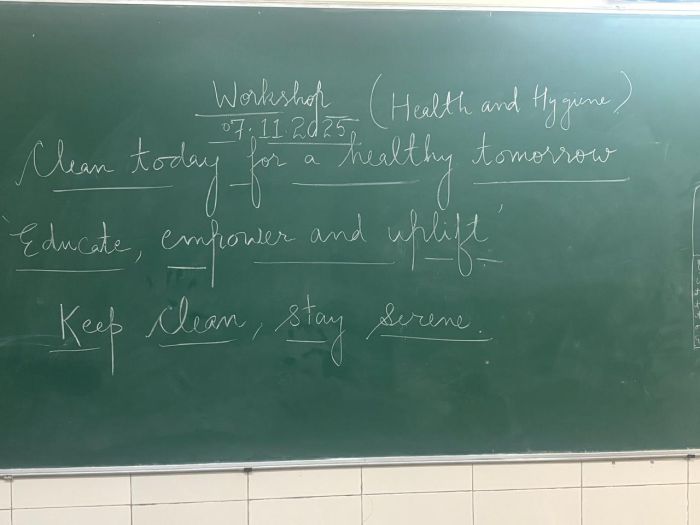 Workshop (Health and Hygiene)
07.11.2025
Clean today for a healthy tomorrow
'Educate, empower and uplift'
Keep clean, stay serene.